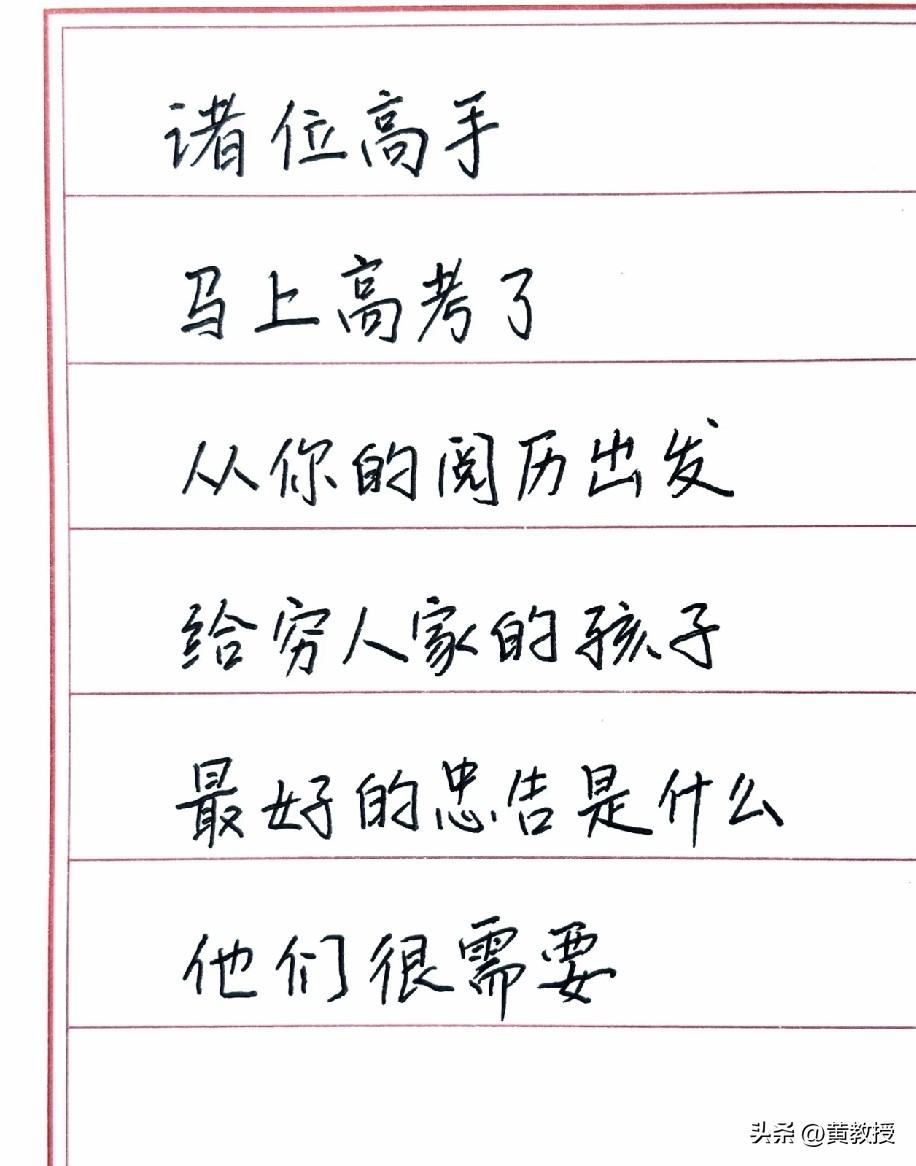 诸位高手
马上高考了
从你的阅历出发
给穷人家的孩子
最好的忠告是什么
他们很需要
头条 @黄教授